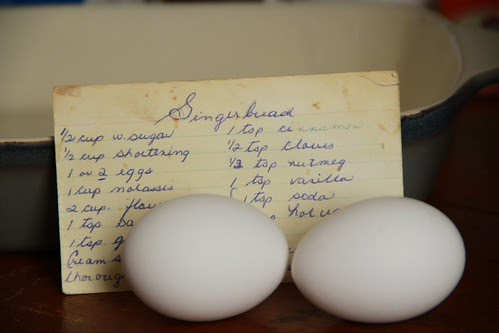 Gingerbread
1/2 cup w. sugar
1/2 cup shortening
1 or 2 eggs
1 cup molasses
2 cup flou
1 tsp ba
1 tsp g
Cream s
thoroug
1 tsp cinnamon
1/2 tsp cloves
1/3 tsp nutmeg
1 tsp vanilla
1 tsp soda
hot w